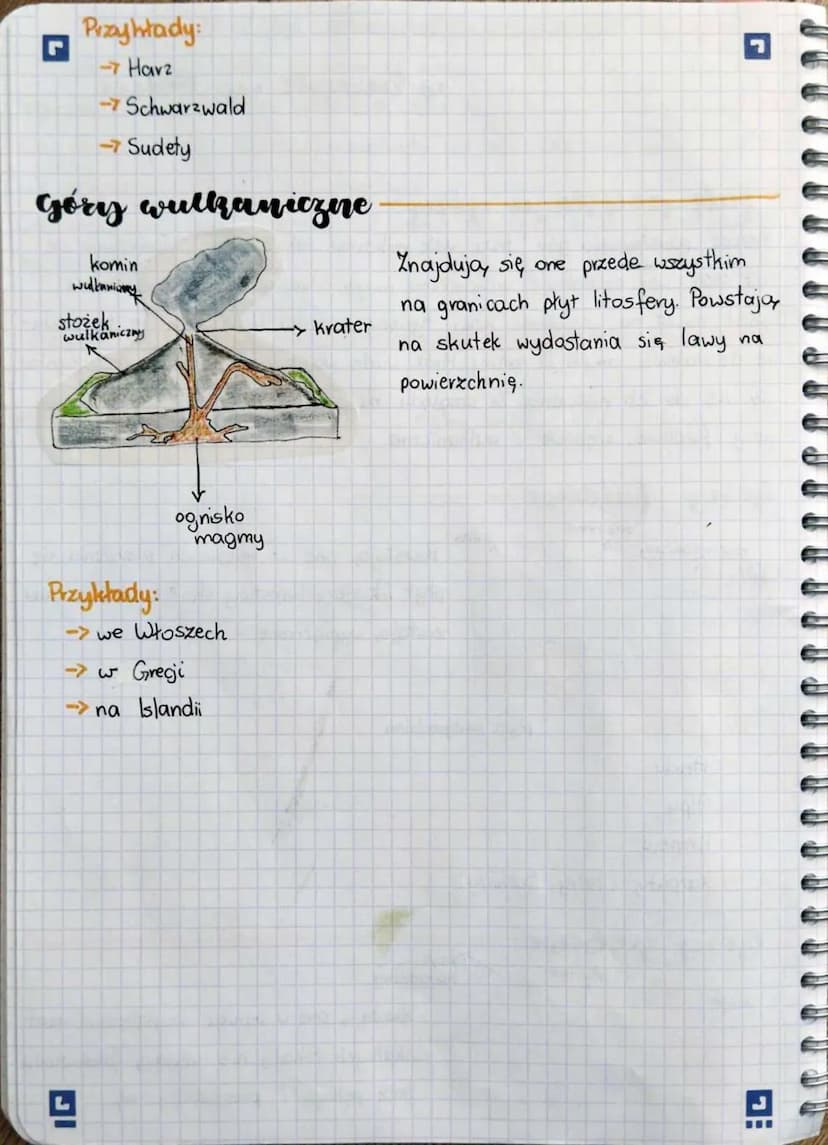 Przykłady:
→ Harz
→ Schwarzwald
→ Sudety
Góry wulkaniczne
komin
wulkaniczny
stożek
wulkaniczny
krater
ognisko
magmy
Znajdują się one przede wszystkim
na granicach płyt litosfery. Powstają
na skutek wydostania się lawy na
powierzchnię.
Przykłady:
→ we Włoszech
→ w Grecji
→ na Islandii